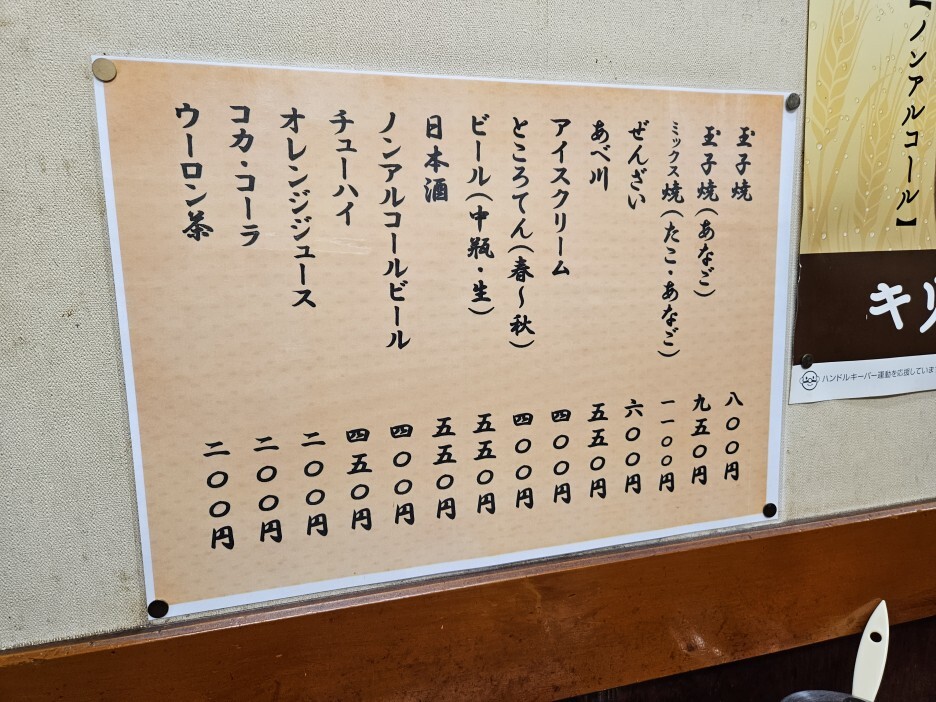 玉子焼 八〇〇円
玉子焼(あなご) 九五〇円
ミックス焼(たこ・あなご) 一一〇〇円
ぜんざい 六〇〇円
あべ川 五五〇円
アイスクリーム 四〇〇円
ところてん(春～秋) 四〇〇円
ビール(中瓶・生) 五五〇円
日本酒 五五〇円
ノンアルコールビール 四〇〇円
チューハイ 四五〇円
オレンジジュース 二〇〇円
コカ・コーラ 二〇〇円
ウーロン茶 二〇〇円
【ノンアルコール】
キリ
ハンドルキーパー運動を応援していま